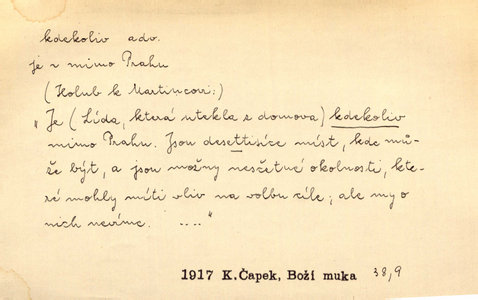 kdekoliv adv.
je v mimo Prahu
(Holub k Martincovi:)
„Je (Lída, která utekla z domova) kdekoliv
mimo Prahu. Jsou desettisíce míst, kde mů-
že být, a jsou možny nesčetné okolnosti, kte-
ré mohly míti vliv na volbu cíle; ale my o
nich nevíme. ...."
1917 K.Čapek, Boží muka 38,9